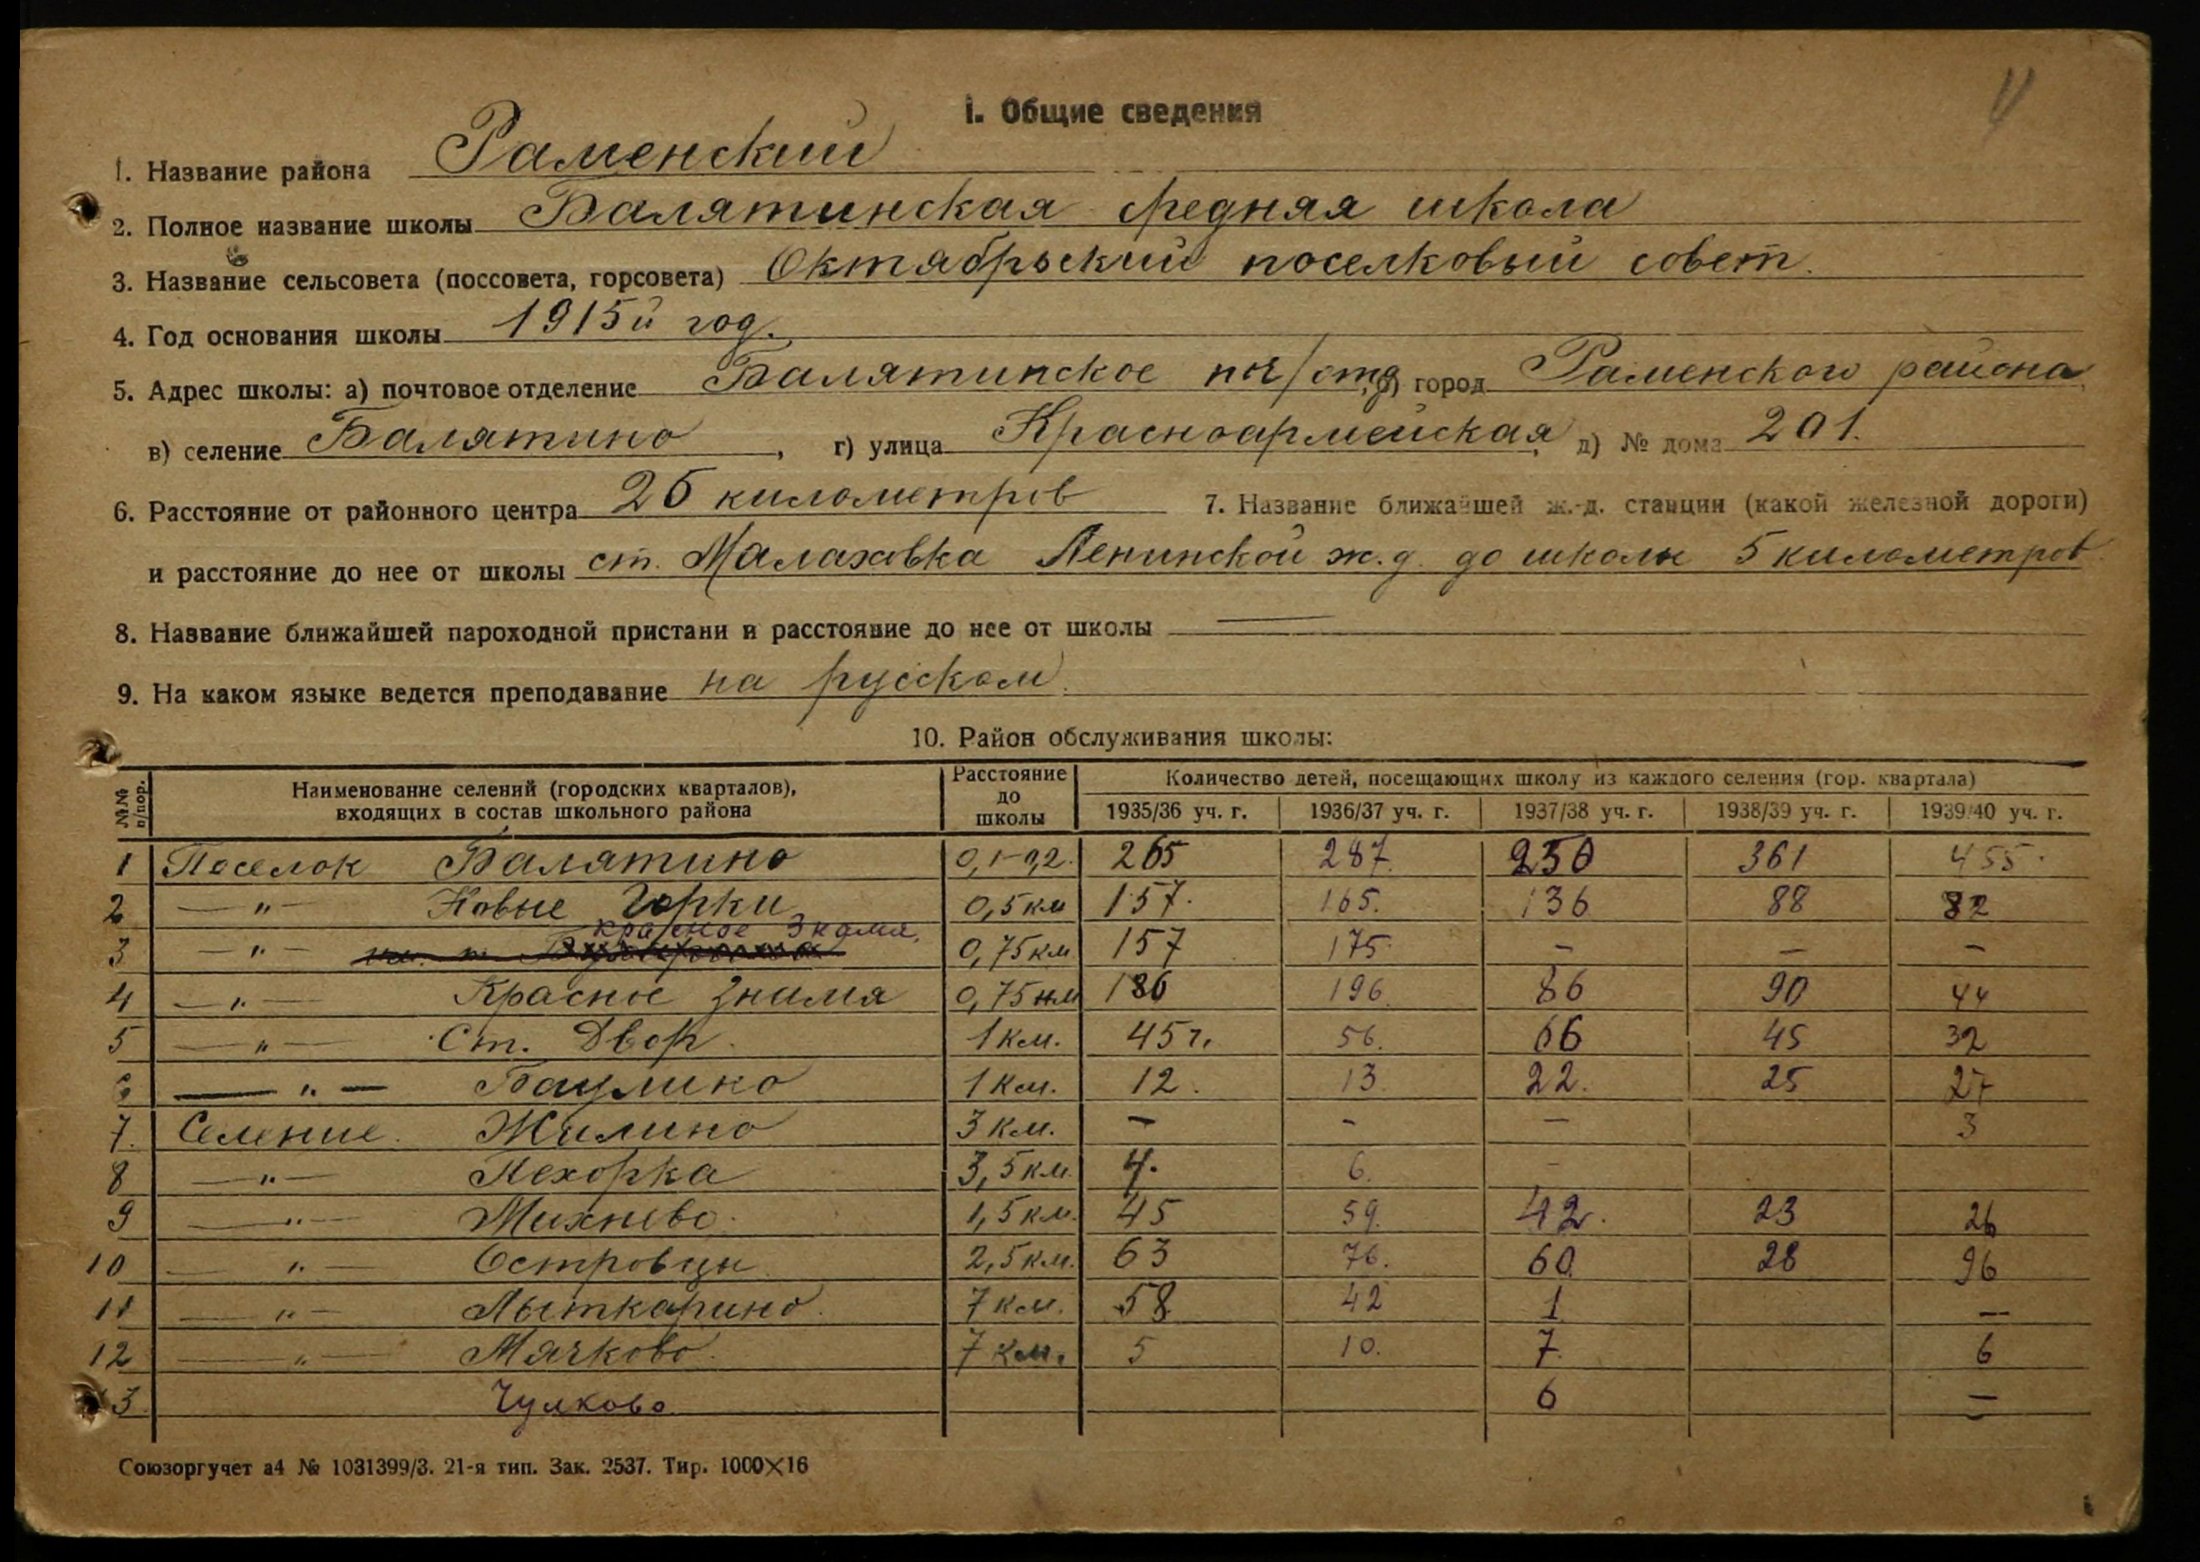 I. Общие сведения
1. Название района Раменский
2. Полное название школы Балятинская средняя школа
3. Название сельсовета (поссовета, горсовета) Октябрьский поселковый совет.
4. Год основания школы 1915й год.
5. Адрес школы: а) почтовое отделение Балятинское поч/отд, б) город Раменского района,
в) селение Балятино, г) улица Красноармейская, д) № дома 201.
6. Расстояние от районного центра 25 километров 7. Название ближайшей ж.-д. станции (какой железной дороги)
и расстояние до нее от школы ст. Малаховка Ленинской ж.д. до школы 5 километров
8. Название ближайшей пароходной пристани и расстояние до нее от школы —
9. На каком языке ведется преподавание на русском.
10. Район обслуживания школы:
№№ п/пор. Наименование селений (городских кварталов), входящих в состав школьного района Расстояние до школы Количество детей, посещающих школу из каждого селения (гор. квартала)
1935/36 уч. г. 1936/37 уч. г. 1937/38 уч. г. 1938/39 уч. г. 1939/40 уч. г.
1 Поселок Балятино 0,1-0,2. 265 287. 250 361 455.
2 —"— Новые Горки 0,5 км 157. 165. 136 88 82
3 —"— Красное Знамя, 0,75 км 157 175. — — —
4 —"— Красное Знамя 0,75 км 186 196. 86 90 44
5 —"— Ст. Двор. 1 км. 45 ч. 56. 66 45 32
6 —"— Баулино 1 км. 12. 13. 22. 25 27
7. Селение. Жилино 3 км. — - — 3
8 —"— Пехорка 3,5 км. 4. 6. -
9 —"— Михнево. 1,5 км. 45 59. 42. 23 26
10 —"— Островцы 2,5 км. 63 76. 60. 28 96
11 —"— Лыткарино. 7 км. 58 42 1 —
12 —"— Мячково. 7 км. 5 10. 7. 6
13 Чулково 6 —
Союзоргучет а4 № 1031399/3. 21-я тип. Зак. 2537. Тир. 1000×16